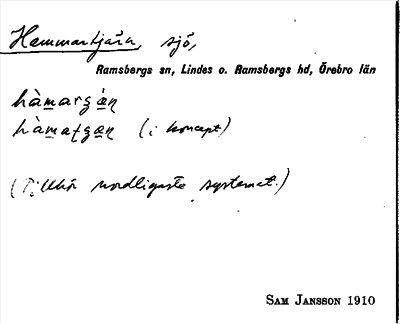 Hammartjärn, sjö,
Ramsbergs sn, Lindes o. Ramsbergs hd, Örebro län
(i koncept)
(Tillhör nordligaste systemet.)
SAM JANSSON 1910